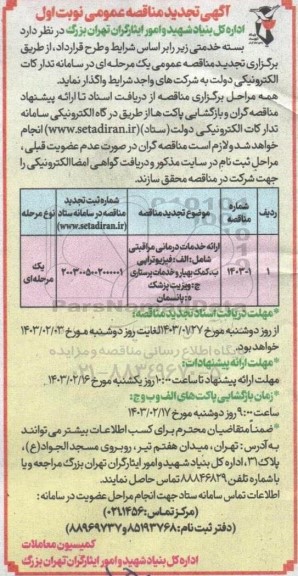 آگهی تجدید مناقصه عمومی نوبت اول
اداره کل بنیاد شهید و امور ایثارگران تهران بزرگ در نظر دارد
بسته خدمتی زیر را بر اساس شرایط و طرح قرارداد، از طریق
برگزاری تجدید مناقصه عمومی یک مرحله‌ای در سامانه تدارکات
الکترونیکی دولت به شرکت های واجد شرایط واگذار نماید.
همه مراحل برگزاری مناقصه از دریافت اسناد تا ارائه پیشنهاد
مناقصه گران و بازگشایی پاکت ها از طریق درگاه الکترونیکی سامانه
تدارکات الکترونیکی دولت (ستاد) (www.setadiran.ir) انجام
خواهد شد و لازم است مناقصه گران در صورت عدم عضویت قبلی،
مراحل ثبت نام در سایت مذکور و دریافت گواهی امضا الکترونیکی را
جهت شرکت در مناقصه محقق سازند.
ردیف
شماره مناقصه
موضوع تجدید مناقصه
شماره ثبت تجدید مناقصه در سامانه ستاد (www.setadiran.ir)
نوع مرحله
۱
۱۴۰۳-۱
ارائه خدمات درمانی مراقبتی
شامل: الف: فیزیوتراپی
ب: کمک بهیار و خدمات پرستاری
ج: ویزیت پزشک
ه: پانسمان
یک مرحله‌ای
*مهلت دریافت اسناد تجدید مناقصه:
از روز دوشنبه مورخ ۱۴۰۳/۰۱/۲۷ لغایت روز دوشنبه مورخ ۱۴۰۳/۰۲/۰۳
خواهد بود.
*مهلت ارائه پیشنهادات:
مهلت ارائه پیشنهاد تا ساعت ۱۰:۰۰ روز یکشنبه مورخ ۱۴۰۳/۰۲/۱۶
*زمان بازگشایی پاکت های الف و ب و ج:
ساعت ۹:۰۰ روز دوشنبه مورخ ۱۴۰۳/۰۲/۱۷
*ضمناً متقاضیان محترم برای کسب اطلاعات بیشتر می توانند
به آدرس: تهران، میدان هفتم تیر، روبروی مسجد الجواد(ع)،
پلاک ۳۱، اداره کل بنیاد شهید و امور ایثارگران تهران بزرگ مراجعه و یا
با شماره تلفن ۸۸۸۴۶۸۲۹ تماس حاصل نمایند.
اطلاعات تماس سامانه ستاد جهت انجام مراحل عضویت در سامانه:
(مرکز تماس: ۰۲۱۱۴۵۶)
(دفتر ثبت نام: ۸۵۱۹۳۷۶۸ و ۸۸۹۶۹۷۳۷)
کمیسیون معاملات
اداره کل بنیاد شهید و امور ایثارگران تهران بزرگ